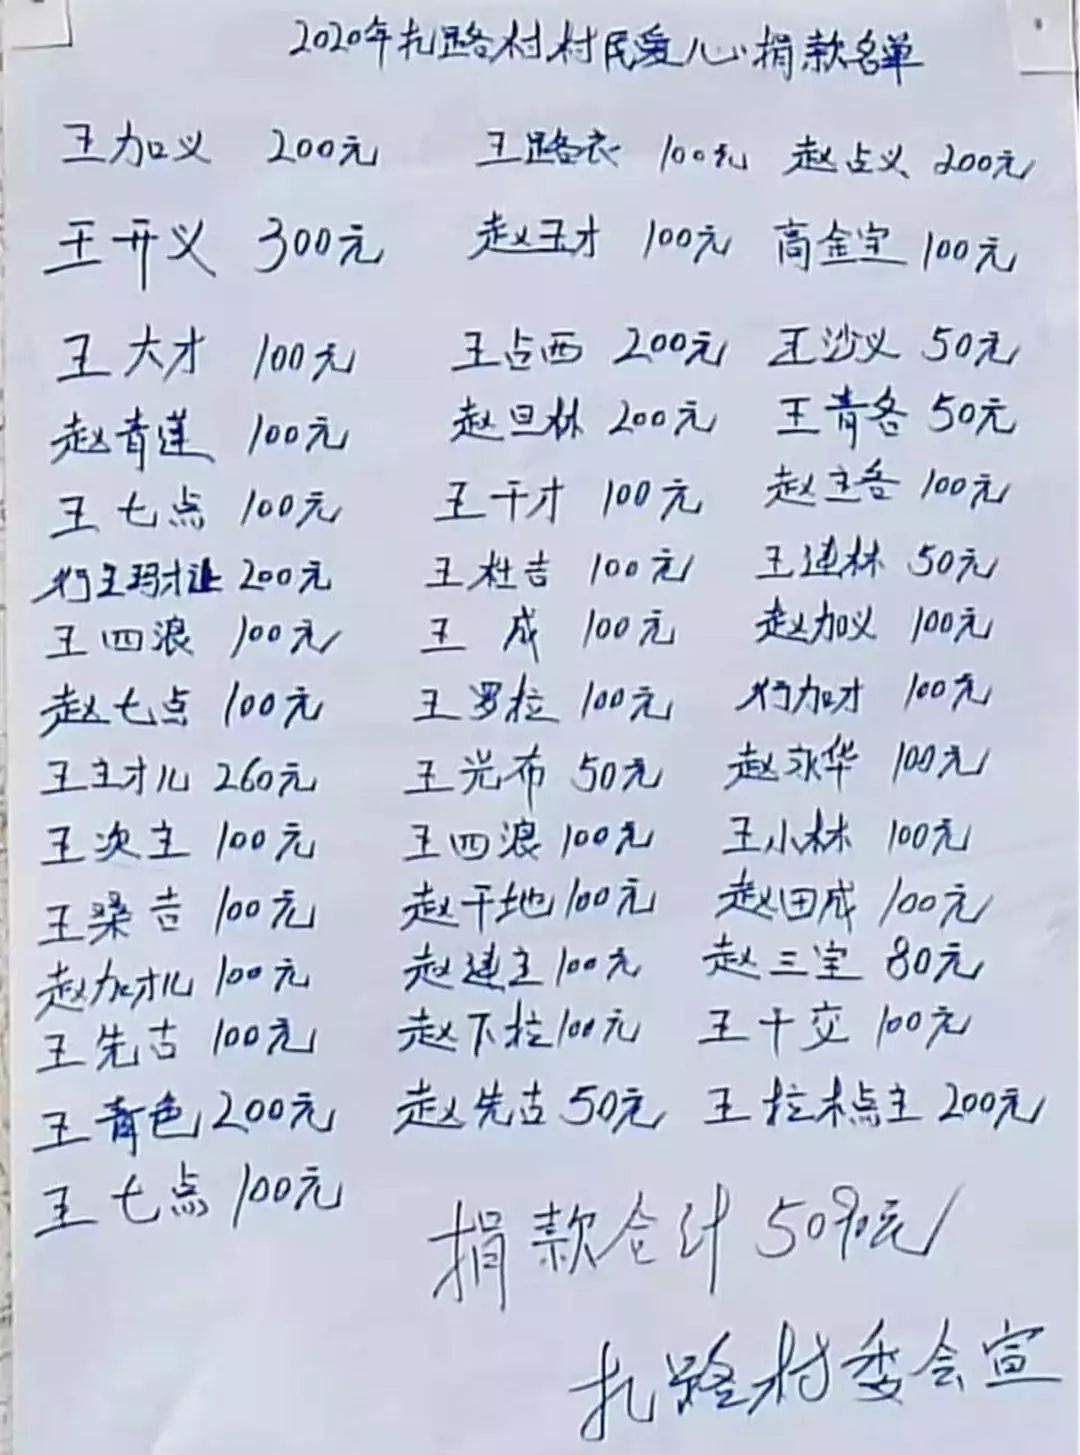 2020年扎路村村民爱心捐款名单
王加义 200元 王路衣 100元 赵占义 200元
王开义 300元 赵玉才 100元 高金宝 100元
王大才 100元 王占西 200元 王沙义 50元
赵青莲 100元 赵旦林 200元 王青各 50元
王七点 100元 王干才 100元 赵主各 100元
王玛才让 200元 王杜吉 100元 王连林 50元
王四浪 100元 王 成 100元 赵加义 100元
赵七点 100元 王罗拉 100元 加才 100元
王主才儿 260元 王尕布 50元 赵永华 100元
王次主 100元 王四浪 100元 王小林 100元
王桑吉 100元 赵干地 100元 赵田成 100元
赵加才儿 100元 赵连主 100元 赵三宝 80元
王先古 100元 赵下拉 100元 王干交 100元
王青色 200元 赵先古 50元 王拉木点主 200元
王七点 100元
捐款合计 5090元
扎路村委会宣